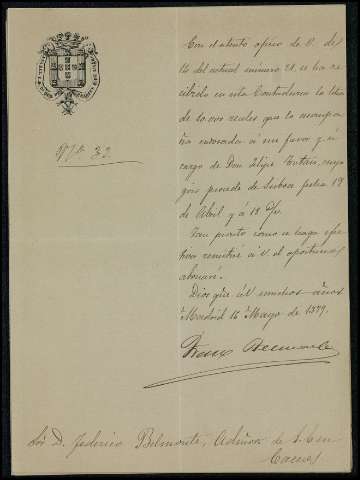 Nº 32
Con el atento oficio de V. de
14 del actual número 28, se ha re
cibido en esta Contaduria la letra
de 30.000 reales que lo acompa
ña endosada á mi favor y á
cargo de Don Felipe cuyo
giro procede de Lisboa fecha 19
de Abril y á 18 d/v.
Tan pronto como se haga efec
tiva remitiré á V. el oportuno
abonaré.
Dios gũe. á V. muchos años
Madrid 16 Mayo de 1879.
Sor. D. Federico Belmonte, Admor. de S. E. en
Caceres